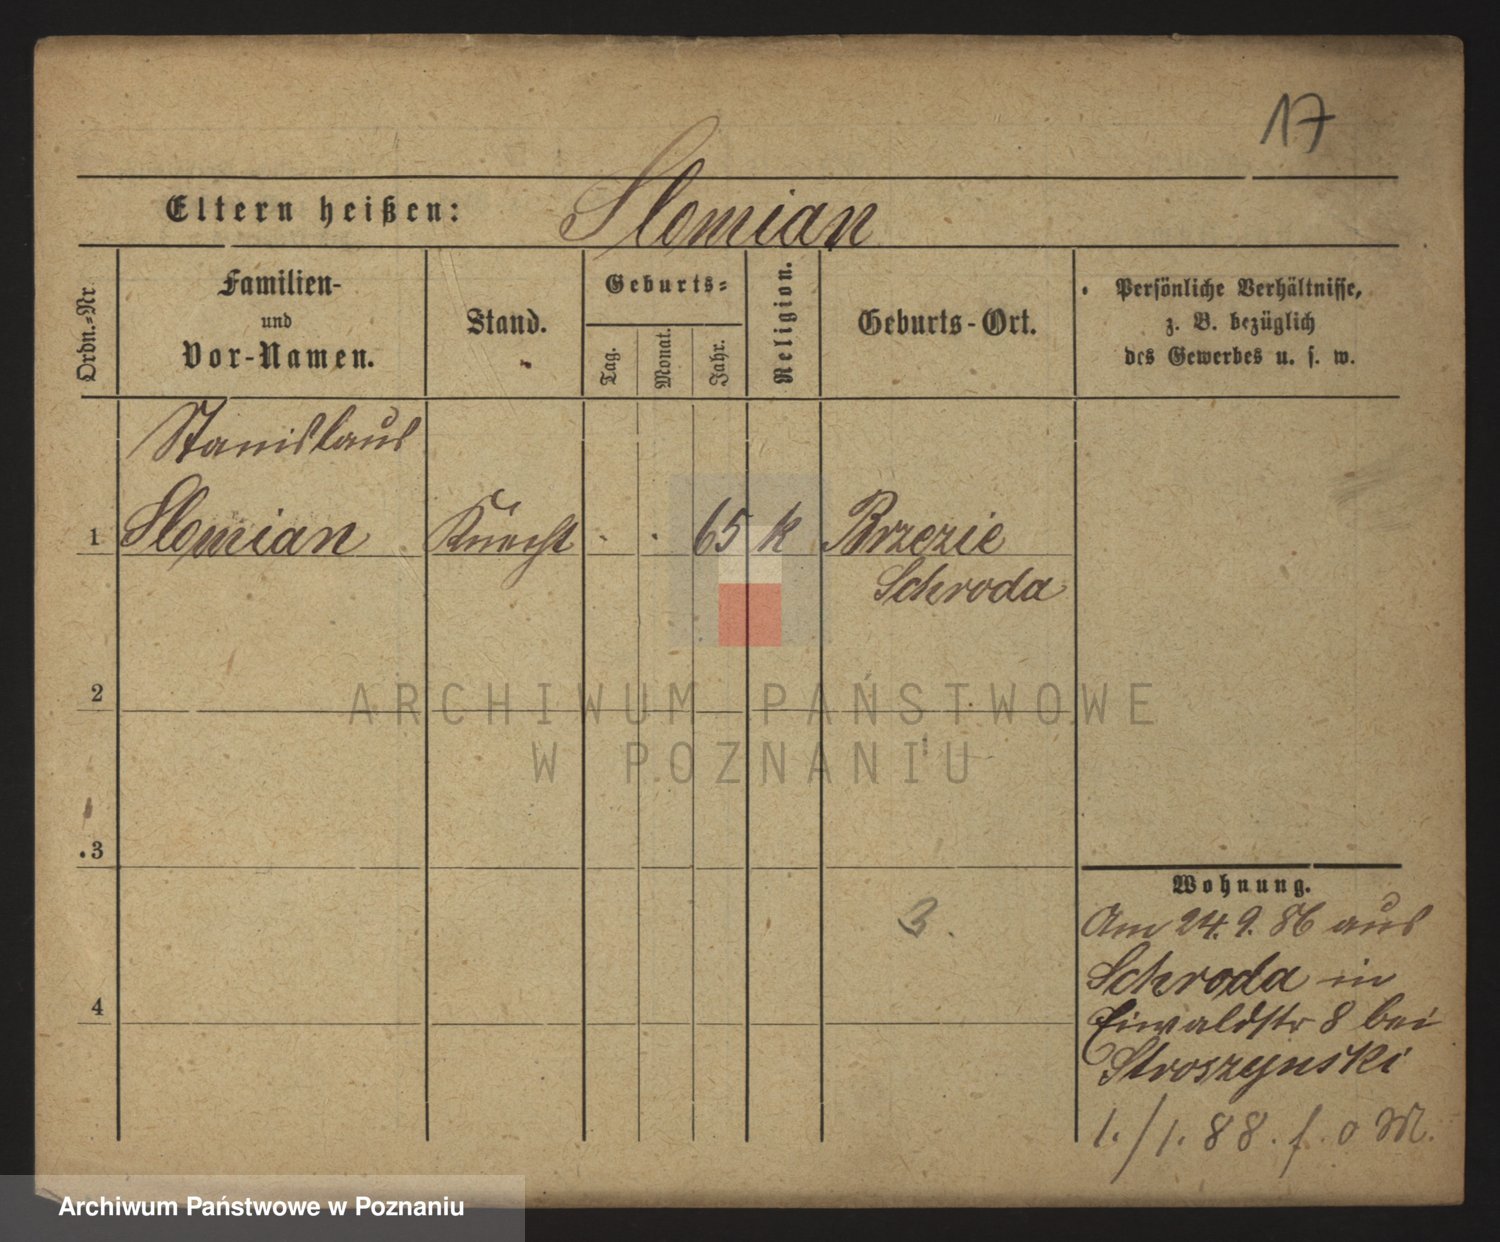 17
Eltern heißen: Slomian
Ordn.-Nr.
Familien-
und
Vor-Namen.
Stand.
Geburts-
Tag.
Monat.
Jahr.
Religion.
Geburts-Ort.
Persönliche Verhältnisse,
z. B. bezüglich
des Gewerbes u. s. w.
Stanislaus
1 Slomian Knecht 65 k Brzezie
Schroda
2
ARCHIWUM PAŃSTWOWE
W POZNANIU
3
Wohnung.
3.
Am 24.9.86 aus
Schroda in
4
Eiwaldstr 8 bei
Stroszynski
1./1.88. f. o M.
Archiwum Państwowe w Poznaniu